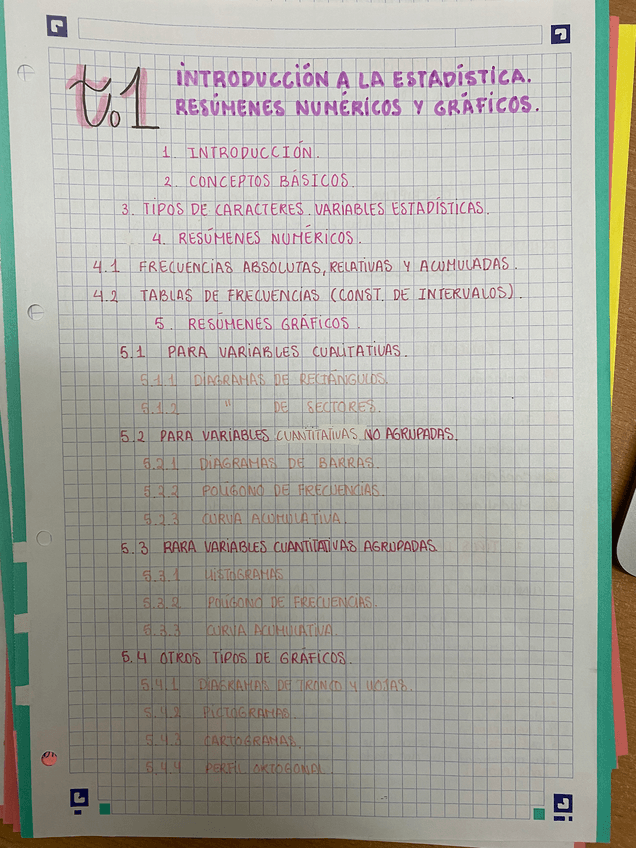 t.1
INTRODUCCIÓN A LA ESTADÍSTICA.
RESÚMENES NUMÉRICOS Y GRÁFICOS.
1. INTRODUCCIÓN.
2. CONCEPTOS BÁSICOS.
3. TIPOS DE CARACTERES. VARIABLES ESTADÍSTICAS.
4. RESÚMENES NUMÉRICOS.
4.1 FRECUENCIAS ABSOLUTAS, RELATIVAS Y ACUMULADAS.
4.2 TABLAS DE FRECUENCIAS (CONST. DE INTERVALOS).
5. RESÚMENES GRÁFICOS.
5.1 PARA VARIABLES CUALITATIVAS.
5.1.1 DIAGRAMAS DE RECTÁNGULOS.
5.1.2 " DE SECTORES.
5.2 PARA VARIABLES CUANTITATIVAS NO AGRUPADAS.
5.2.1 DIAGRAMAS DE BARRAS.
5.2.2 POLÍGONO DE FRECUENCIAS.
5.2.3 CURVA ACUMULATIVA.
5.3 PARA VARIABLES CUANTITATIVAS AGRUPADAS.
5.3.1 HISTOGRAMAS
5.3.2 POLÍGONO DE FRECUENCIAS.
5.3.3 CURVA ACUMULATIVA.
5.4 OTROS TIPOS DE GRÁFICOS.
5.4.1 DIAGRAMAS DE TRONCO Y HOJAS.
5.4.2 PICTOGRAMAS.
5.4.3 CARTOGRAMAS.
5.4.4 PERFIL ORTOGONAL.